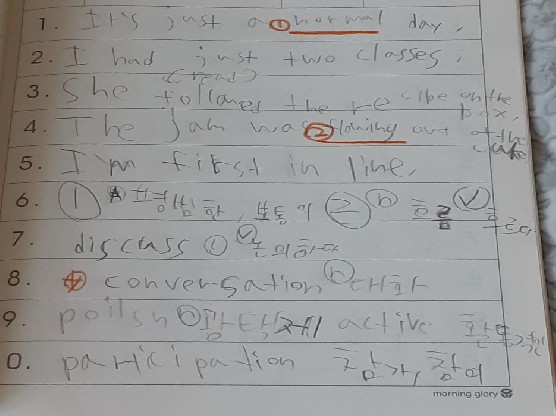 1. It's just a ① normal day.
2. I had just two classes.
(read)
3. She followed the recipe on the box.
4. The jam was ② flowing out of the cake
5. I'm first in line.
6. ① ⓐ 평범한, 보통의 ② ⓝ 흐름 ⓥ 흐르다
7. discuss ① ⓥ 논의하다
8. conversation ⓝ 대화
9. polish ⓝ 광택제 active
0. participation 참가, 참여
morning glory